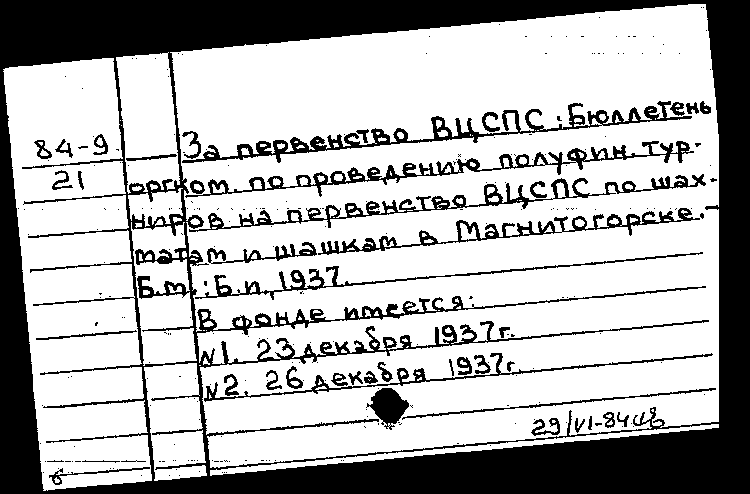 84-9 За первенство ВЦСПС: Бюллетень
21 оргком. по проведению полуфин. тур-
ниров на первенство ВЦСПС по шах-
матам и шашкам в Магнитогорске.-
Б.м.: Б.и., 1937.
В фонде имеется:
N1. 23 декабря 1937г.
N2. 26 декабря 1937г.
29/VI-84
б